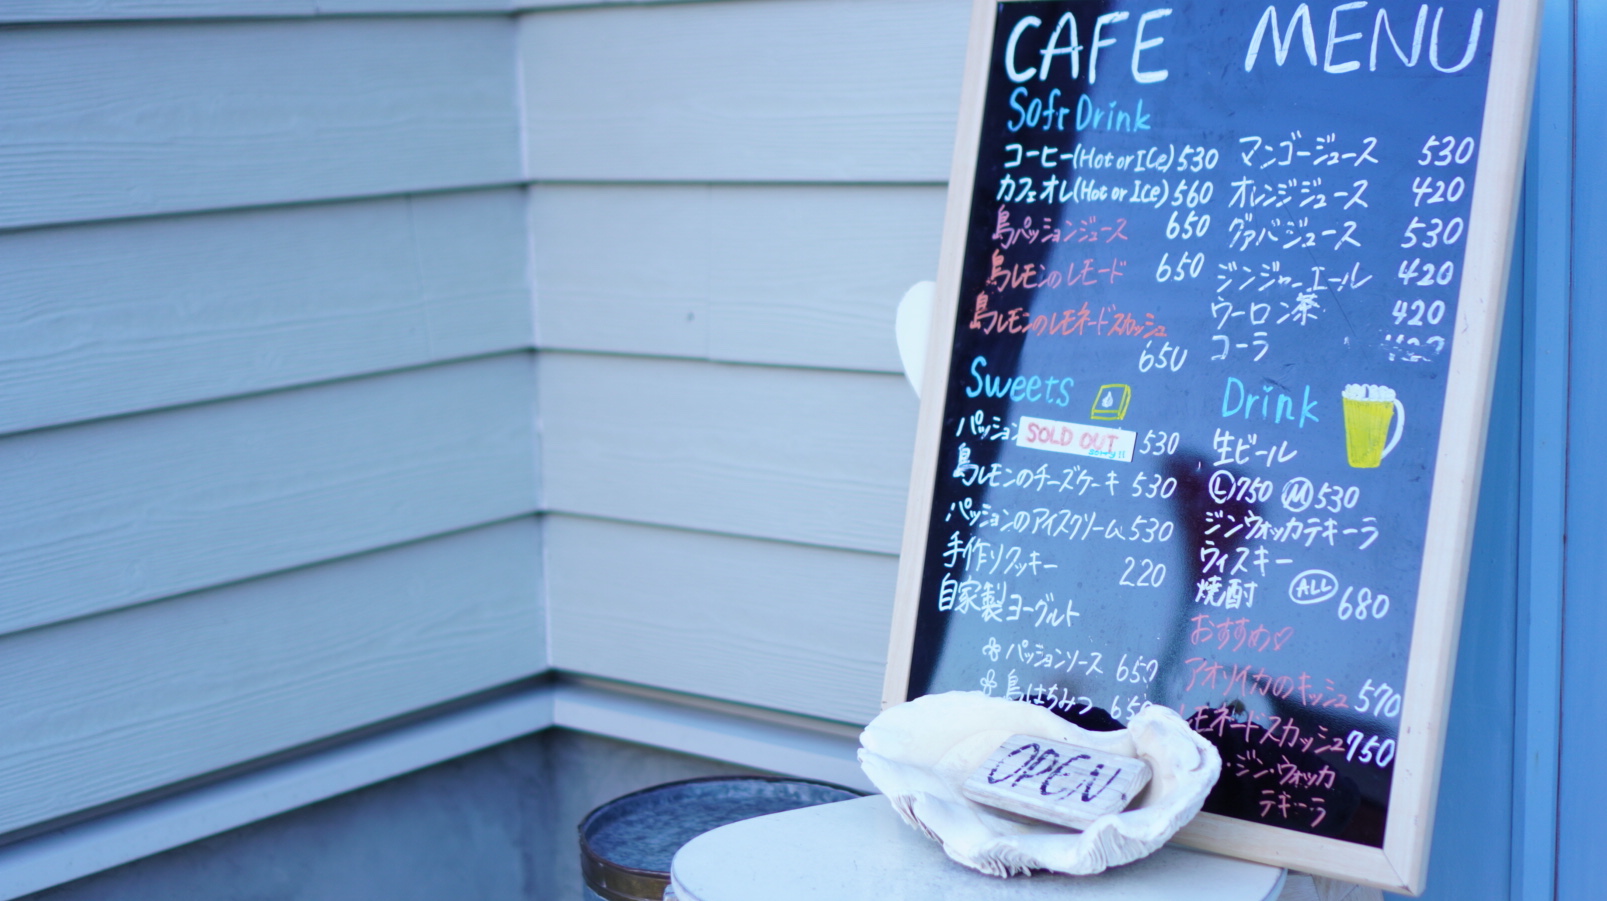 CAFE MENU
Soft Drink
コーヒー(Hot or ICe) 530
カフェオレ(Hot or ICe) 560
島パッションジュース 650
島レモンのレモード 650
島レモンのレモネードスカッシュ
650
マンゴージュース 530
オレンジジュース 420
グァバジュース 530
ジンジャーエール 420
ウーロン茶 420
コーラ
Sweets
パッション SOLD OUT 530
sorry!!
島レモンのチーズケーキ 530
パッションのアイスクリーム 530
手作りクッキー 220
自家製ヨーグルト
パッションソース 650
島はちみつ 650
Drink
生ビール
Ⓛ750 Ⓜ530
ジンウォッカテキーラ
ウィスキー
焼酎 ALL 680
おすすめ♡
アオリイカのキッシュ 570
レモネードスカッシュ 750
・ジン・ウォッカ
テキーラ
OPEN